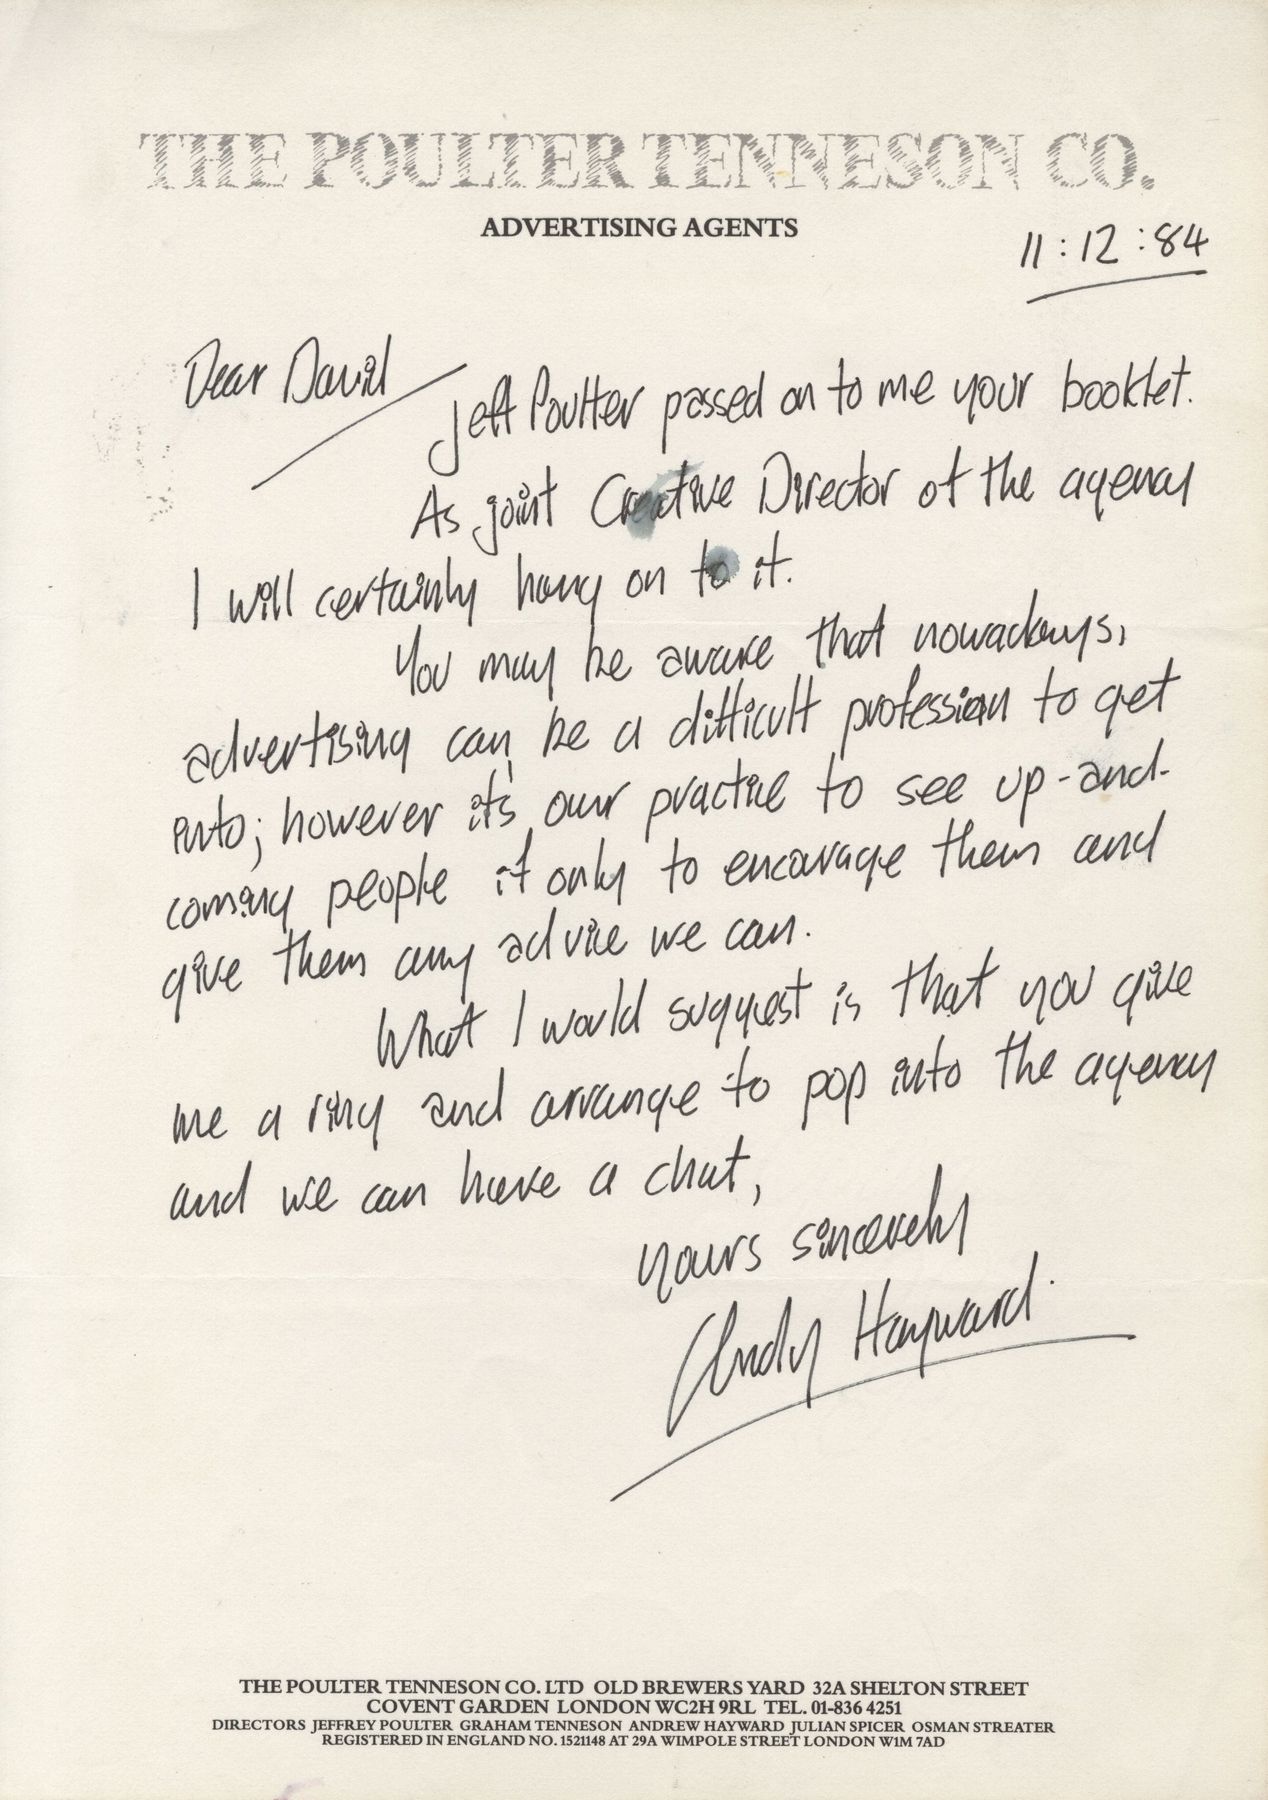 THE POULTER TENNESON CO.
ADVERTISING AGENTS
11:12:84
Dear David
Jeff Poulter passed on to me your booklet.
As joint Creative Director of the agency
I will certainly hang on to it.
You may be aware that nowadays,
advertising can be a difficult profession to get
into; however it's our practice to see up-and-
coming people if only to encourage them and
give them any advice we can.
What I would suggest is that you give
me a ring and arrange to pop into the agency
and we can have a chat,
yours sincerely
Andy Hayward.
THE POULTER TENNESON CO. LTD OLD BREWERS YARD 32A SHELTON STREET
COVENT GARDEN LONDON WC2H 9RL TEL. 01-836 4251
DIRECTORS JEFFREY POULTER GRAHAM TENNESON ANDREW HAYWARD JULIAN SPICER OSMAN STREATER
REGISTERED IN ENGLAND NO. 1521148 AT 29A WIMPOLE STREET LONDON W1M 7AD